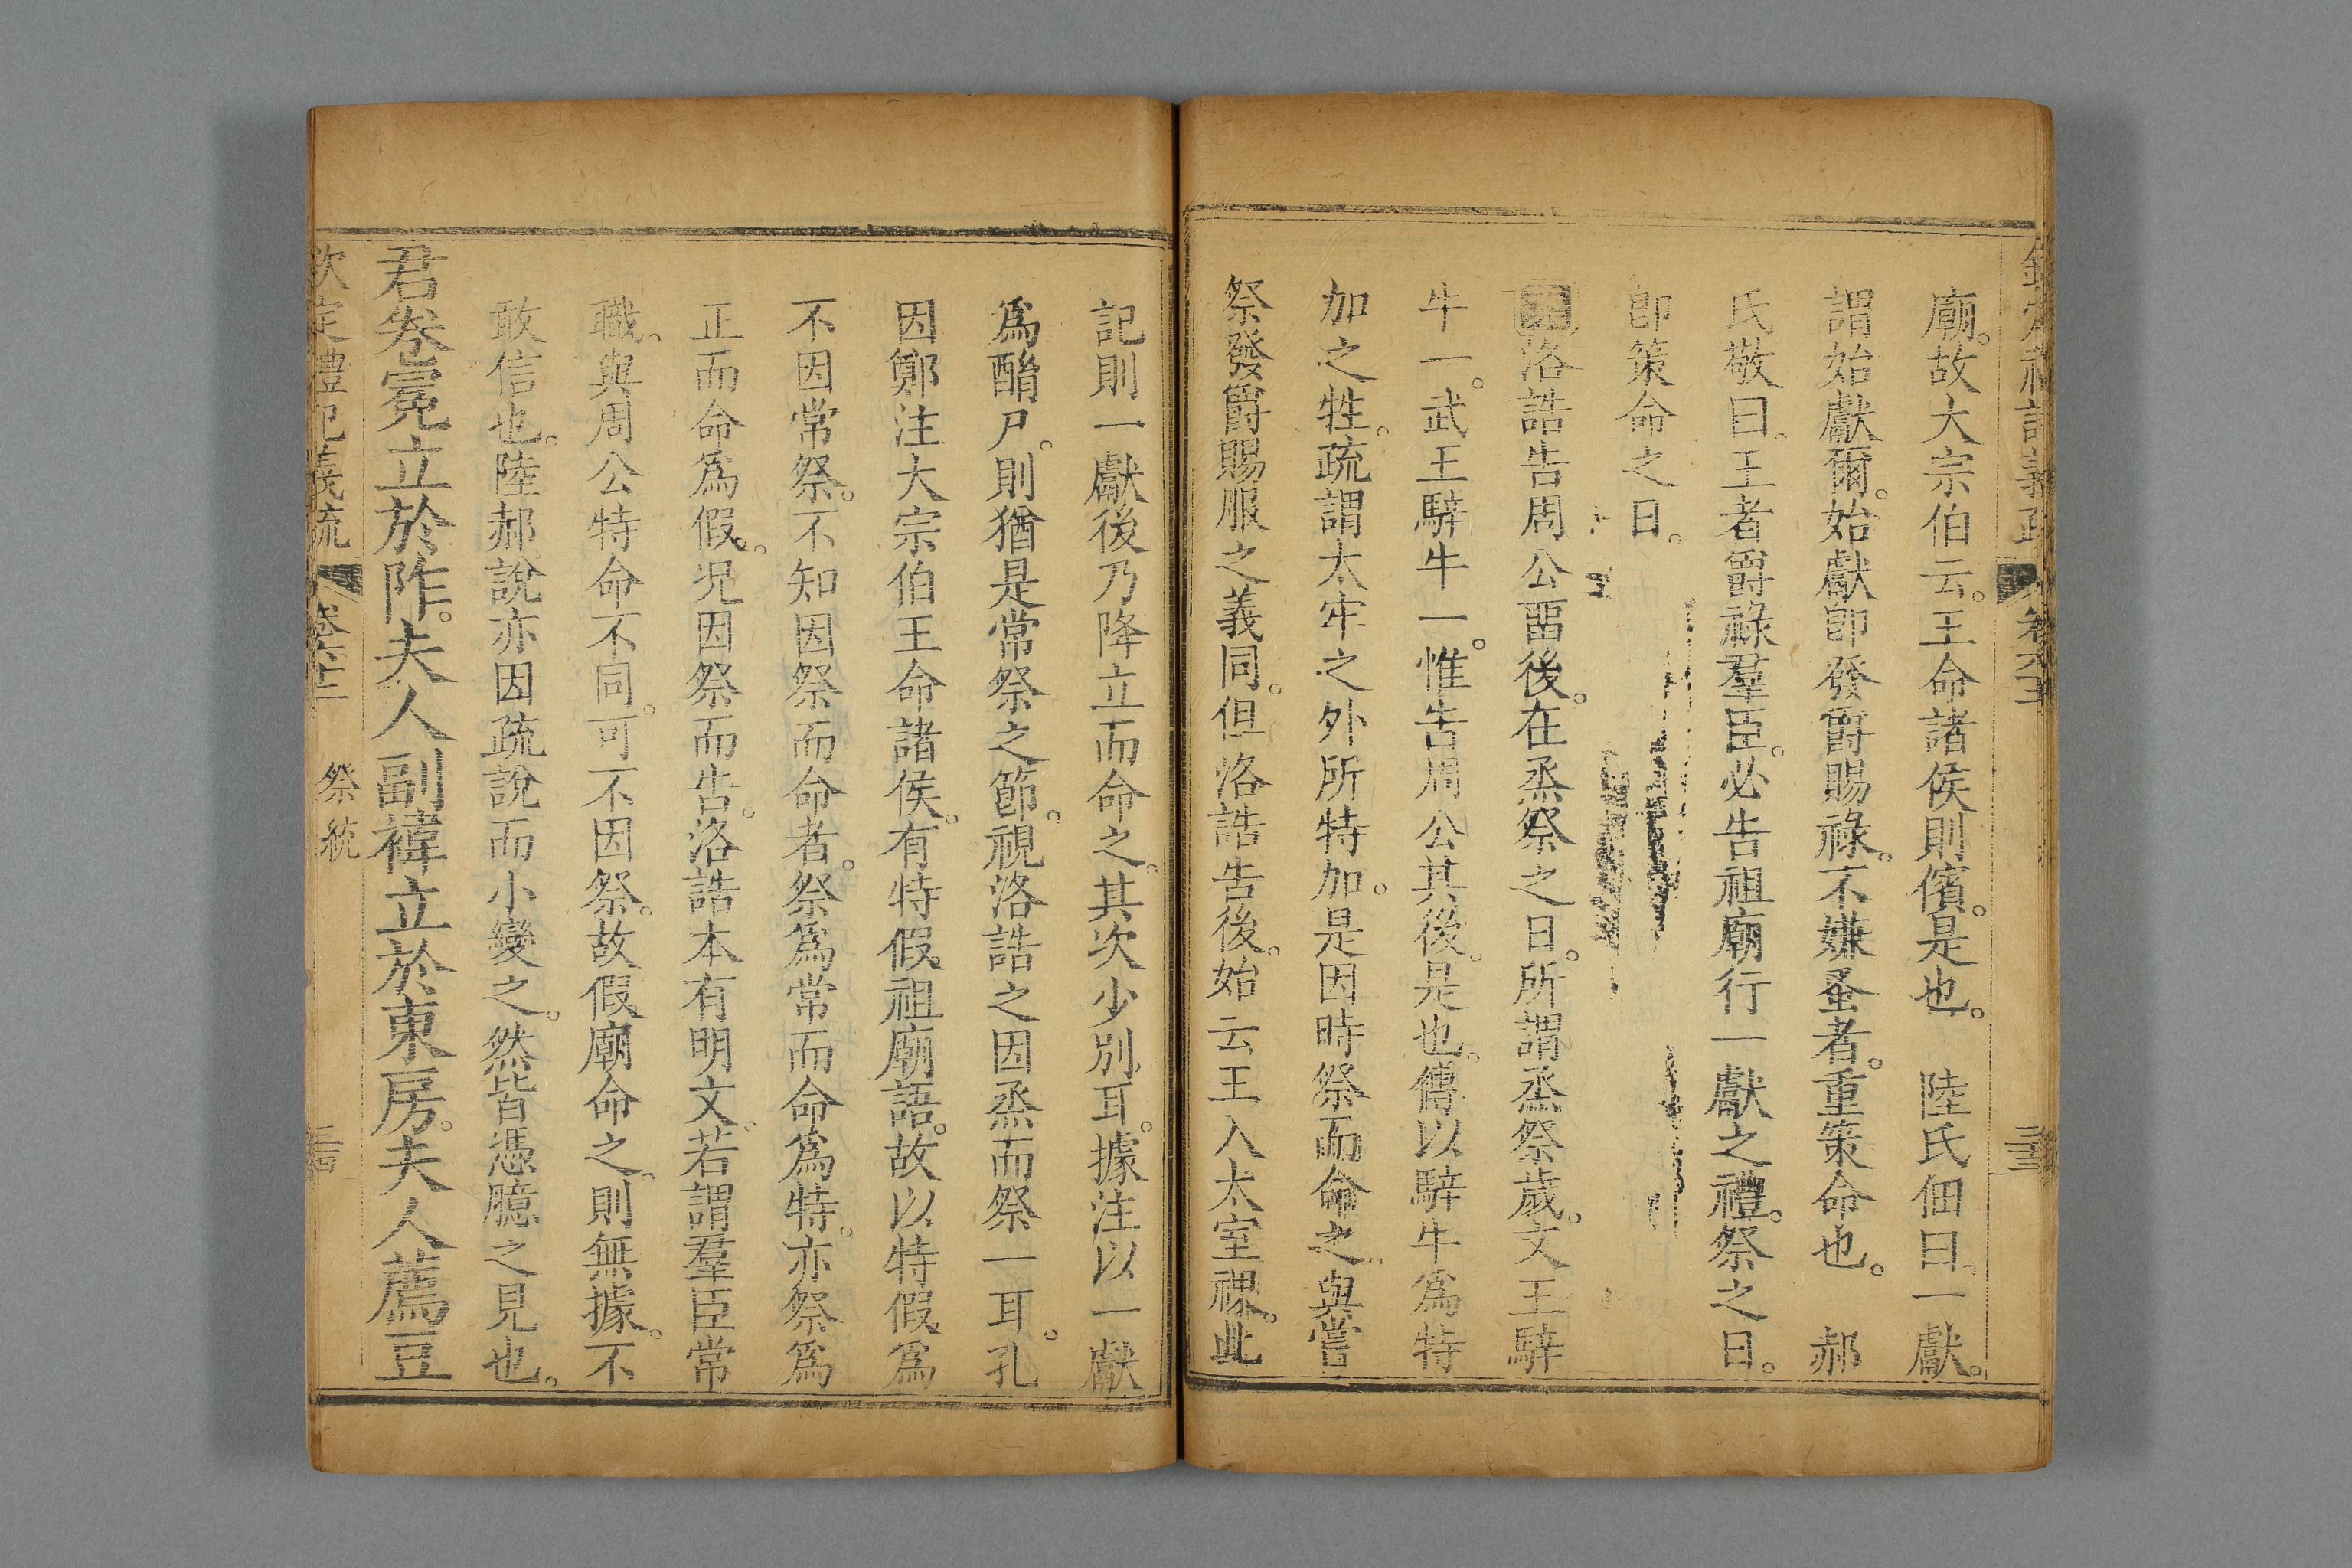 廟。故大宗伯云。王命諸侯則儐。是也。　陸氏佃曰。一獻。
謂始獻爾。始獻卽發爵賜祿。不嫌蚤者。重策命也。　郝
氏敬曰。王者爵祿羣臣。必告祖廟行一獻之禮。祭之日。
卽策命之日。
洛誥告周公畱後。在烝祭之日。所謂烝祭歲。文王騂
牛一。武王騂牛一。惟告周公其後。是也。傳以騂牛爲特
加之牲。疏謂太牢之外所特加。是因時祭而命之。與嘗
祭發爵賜服之義同。但洛誥告後。始云王入太室祼。此
記則一獻後乃降立而命之。其次少別耳。據注以一獻
爲酳尸。則猶是常祭之節。視洛誥之因烝而祭一耳。孔
因鄭注大宗伯王命諸侯。有特假祖廟語。故以特假爲
不因常祭。不知因祭而命者。祭爲常而命爲特。亦祭爲
正而命爲假。况因祭而告。洛誥本有明文。若謂羣臣常
職。與周公特命不同。可不因祭。故假廟命之。則無據。不
敢信也。陸郝說亦因疏說而小變之。然皆憑臆之見也。
君卷冕立於阼。夫人副褘立於東房。夫人薦豆
欽定禮記義疏　卷六十二　祭統